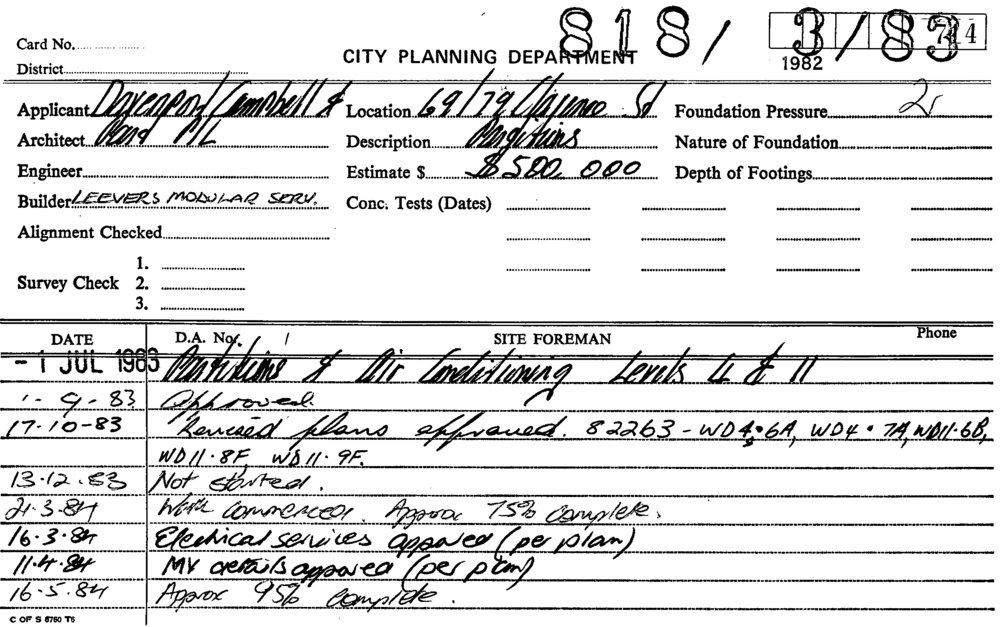 818/ 3/83
714
1982
Card No.
District
CITY PLANNING DEPARTMENT
Applicant Davenport Campbell &
Location 69/79 Clarence St
Foundation Pressure
Architect Ward P/L
Description Partitions
Nature of Foundation
Engineer
Estimate $ $500,000
Depth of Footings
Builder LEEVERS MODULAR SERV.
Conc. Tests (Dates)
Alignment Checked
Survey Check 1.
2.
3.
DATE D.A. No. SITE FOREMAN Phone
- 1 JUL 1983 Partitions & Air Conditioning Levels 4 & 11
1-9-83 Approved.
17-10-83 Revised plans approved. 82263 - WD4.6A, WD4.7A, WD11.6B,
WD11.8F, WD11.9F.
13.12.83 Not started.
21.3.84 Work commenced. Approx 75% complete.
16.3.84 Electrical services approved (per plan)
11.4.84 MV details approved (per plan)
16.5.84 Approx 95% complete.
C OF S 8760 T5